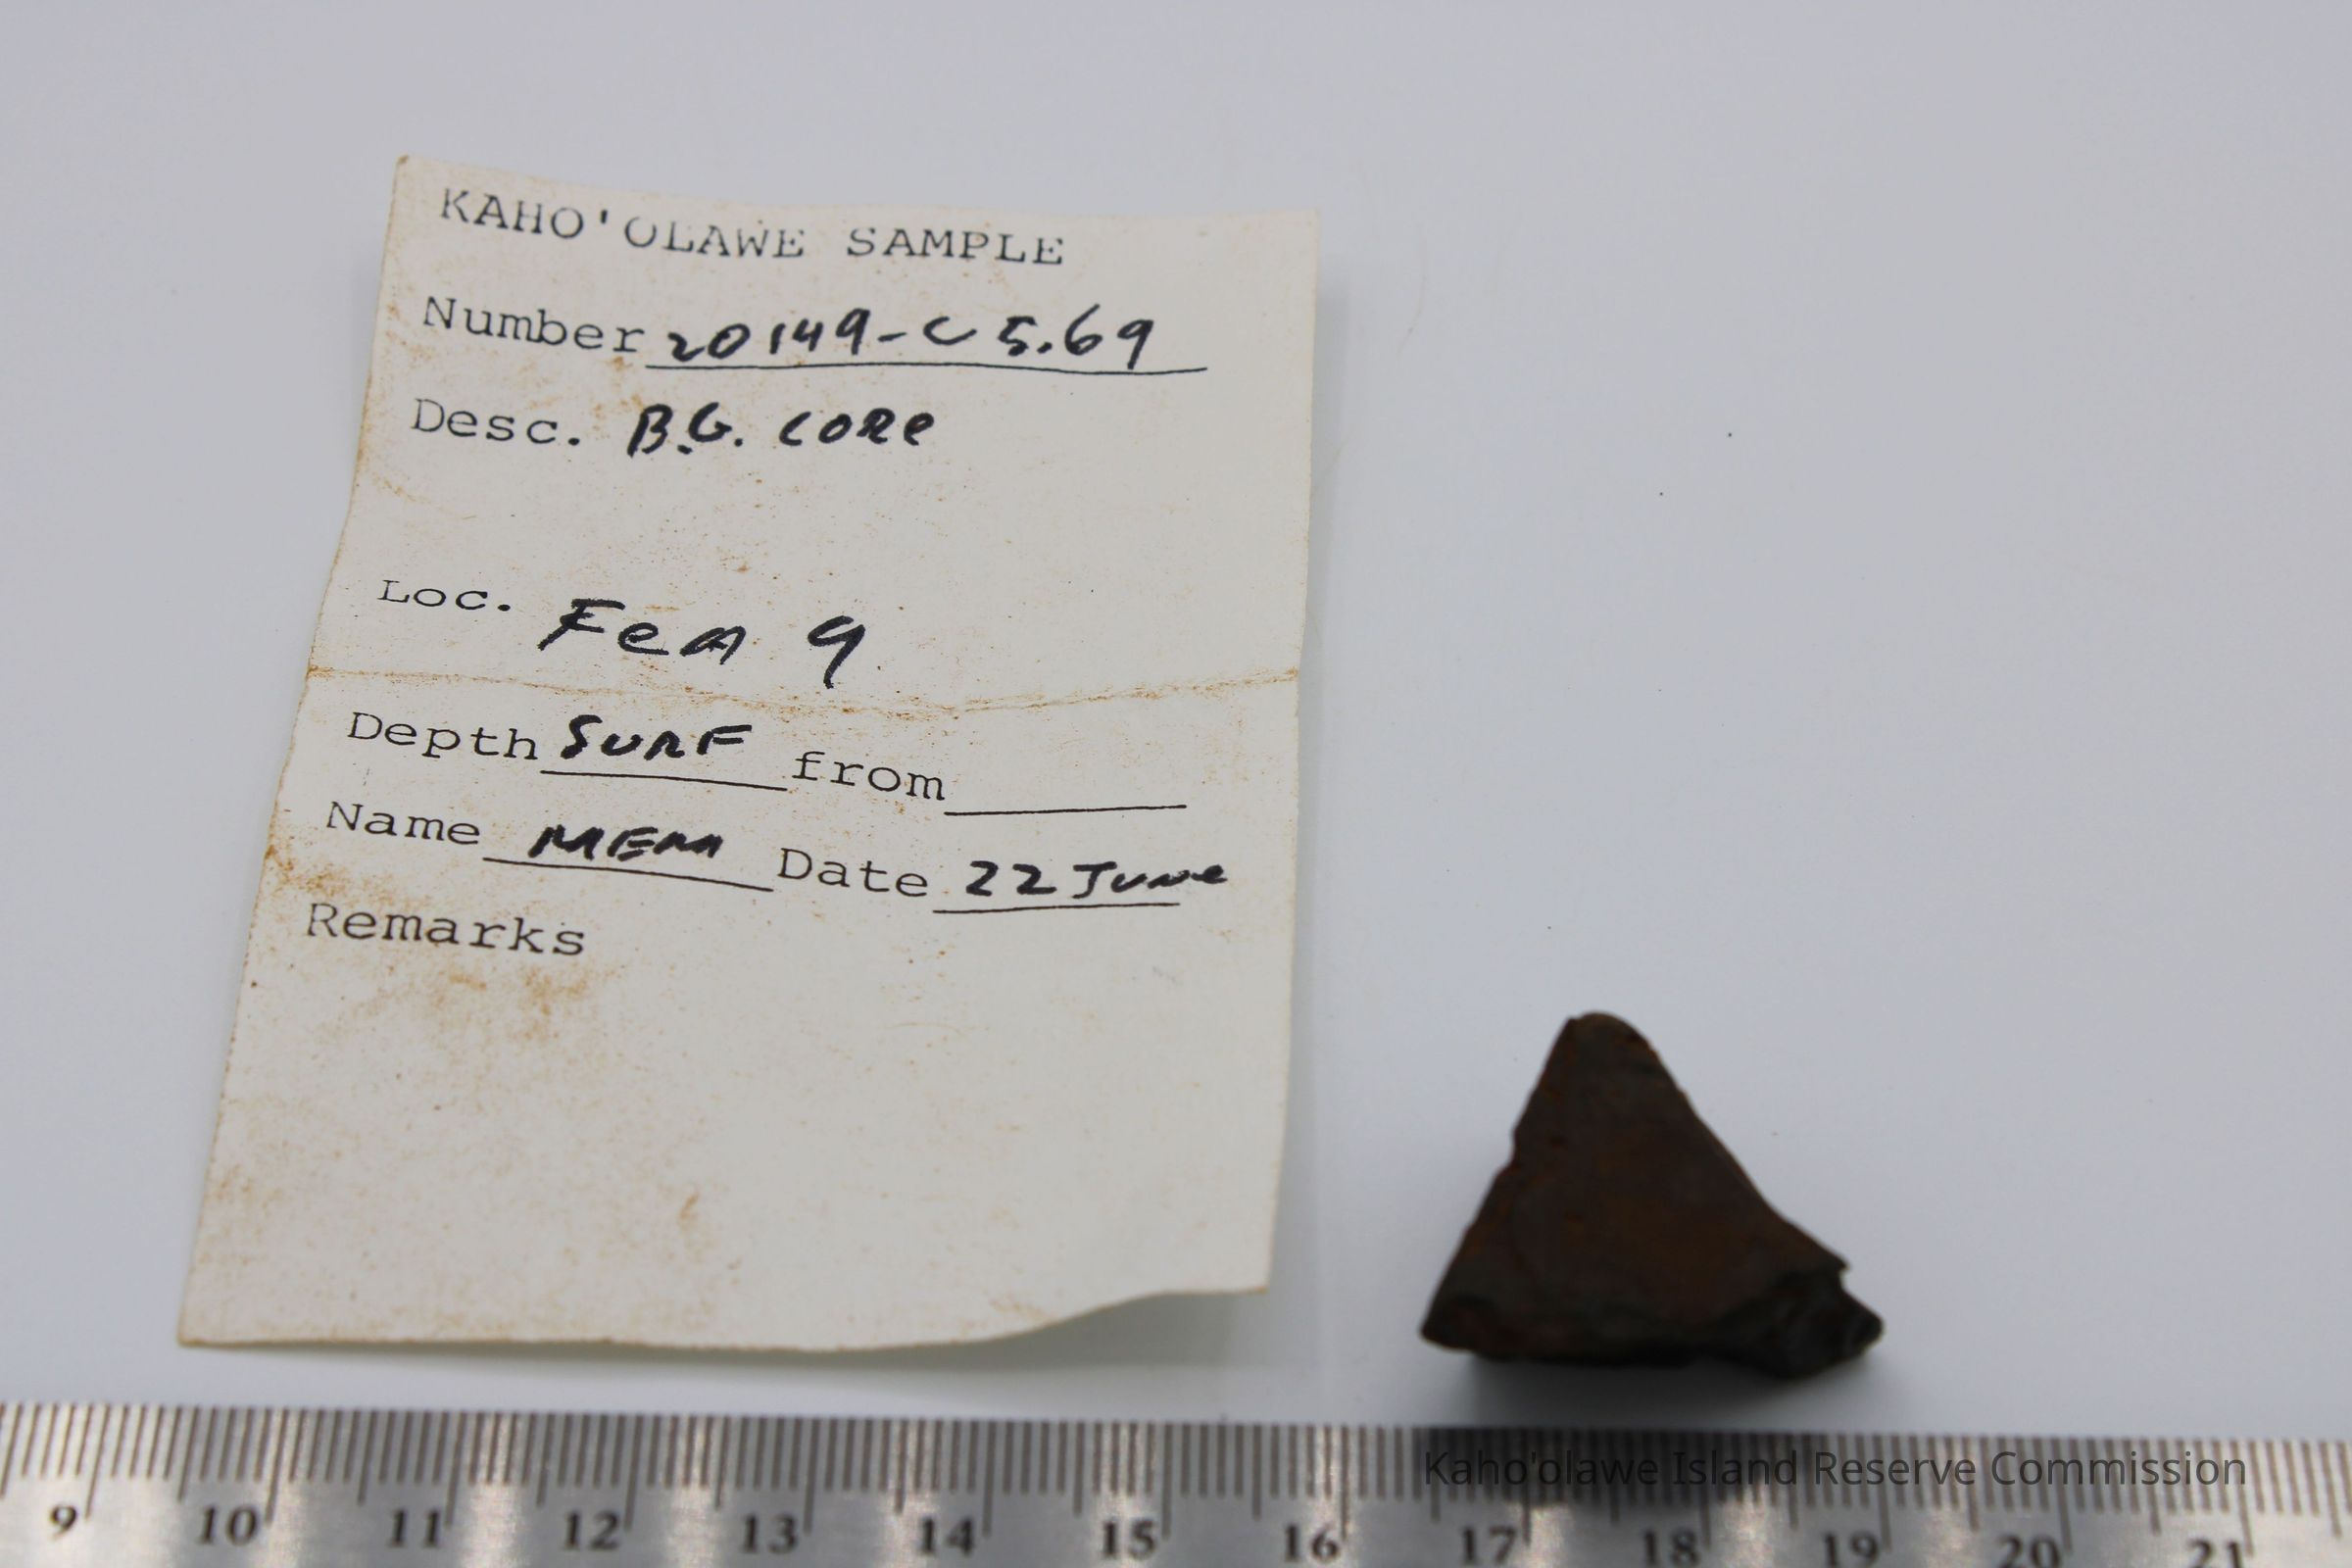 KAHO'OLAWE SAMPLE
Number 20149-C5.69
Desc. B.G. CORE
Loc. FeA 9
Depth SURF from
Name MEM Date 22 June
Remarks
Kaho'olawe Island Reserve Commission
9 10 11 12 13 14 15 16 17 18 19 20 21